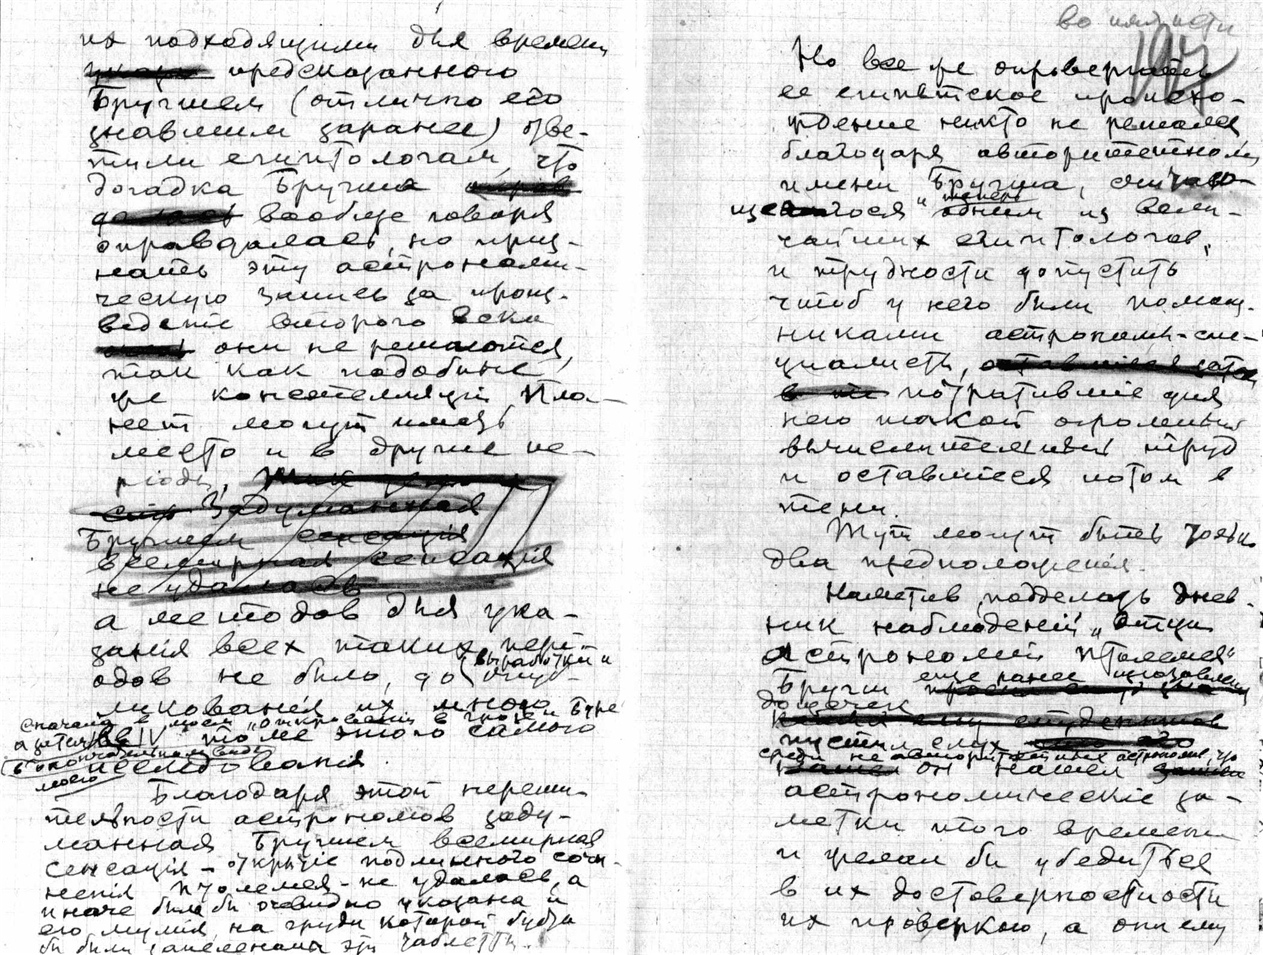 их подходящими для времени
предсказанного
Бругшем (отлично его
знавшим заранее) отве-
тили египтологам, что
догадка Бругша
вообще говоря
оправдалась, но приз-
нать эту астрономи-
ческую запись за произ-
ведение второго века
они не решаются,
так как подобные
же констелляции пла-
нет могут иметь
место и в другие пе-
ріоды,
есть Задуманная
Бругшем сенсація
всемирная сенсація
не удалась
а методов для ука-
занія всех таких пері-
одов не было, до выработки и опуб-
ликованія их мною
сначала в моем "откровеніи в грозе и буре"
а затем в IV томе этого самого
моего изследованія.
Благодаря этой нереши-
тельности астрономов заду-
манная Бругшем всемирная
сенсація – открытіе подлинного сочи-
ненія Птолемея – не удалась, а
иначе была бы очевидно указана и
его мумія, на груди которой будто
бы были эти таблетки.
197
Но все же опровергать
ее египетское происхо-
ждение никто не решался
благодаря авторитетному
имени Бругша, считаю-
щегося теперь одним из вели-
чайших египтологов,
и трудности допустить
чтоб у него были помощ-
никами астрономы-спе-
циалисты,
потратившіе для
него такой огромный
вычислительный труд
и оставшіеся потом в
тени.
Тут могут быть только
два предположенія.
Наметив подделать днев-
ник наблюденій "отца
астрономіи Птолемея"
Бругш еще ранее
пустил слух
среди не авторитетных астрономов, что
он нашел
астрономическіе за-
метки того времени
и желал бы убедиться
в их достоверности
их проверкою, а они ему